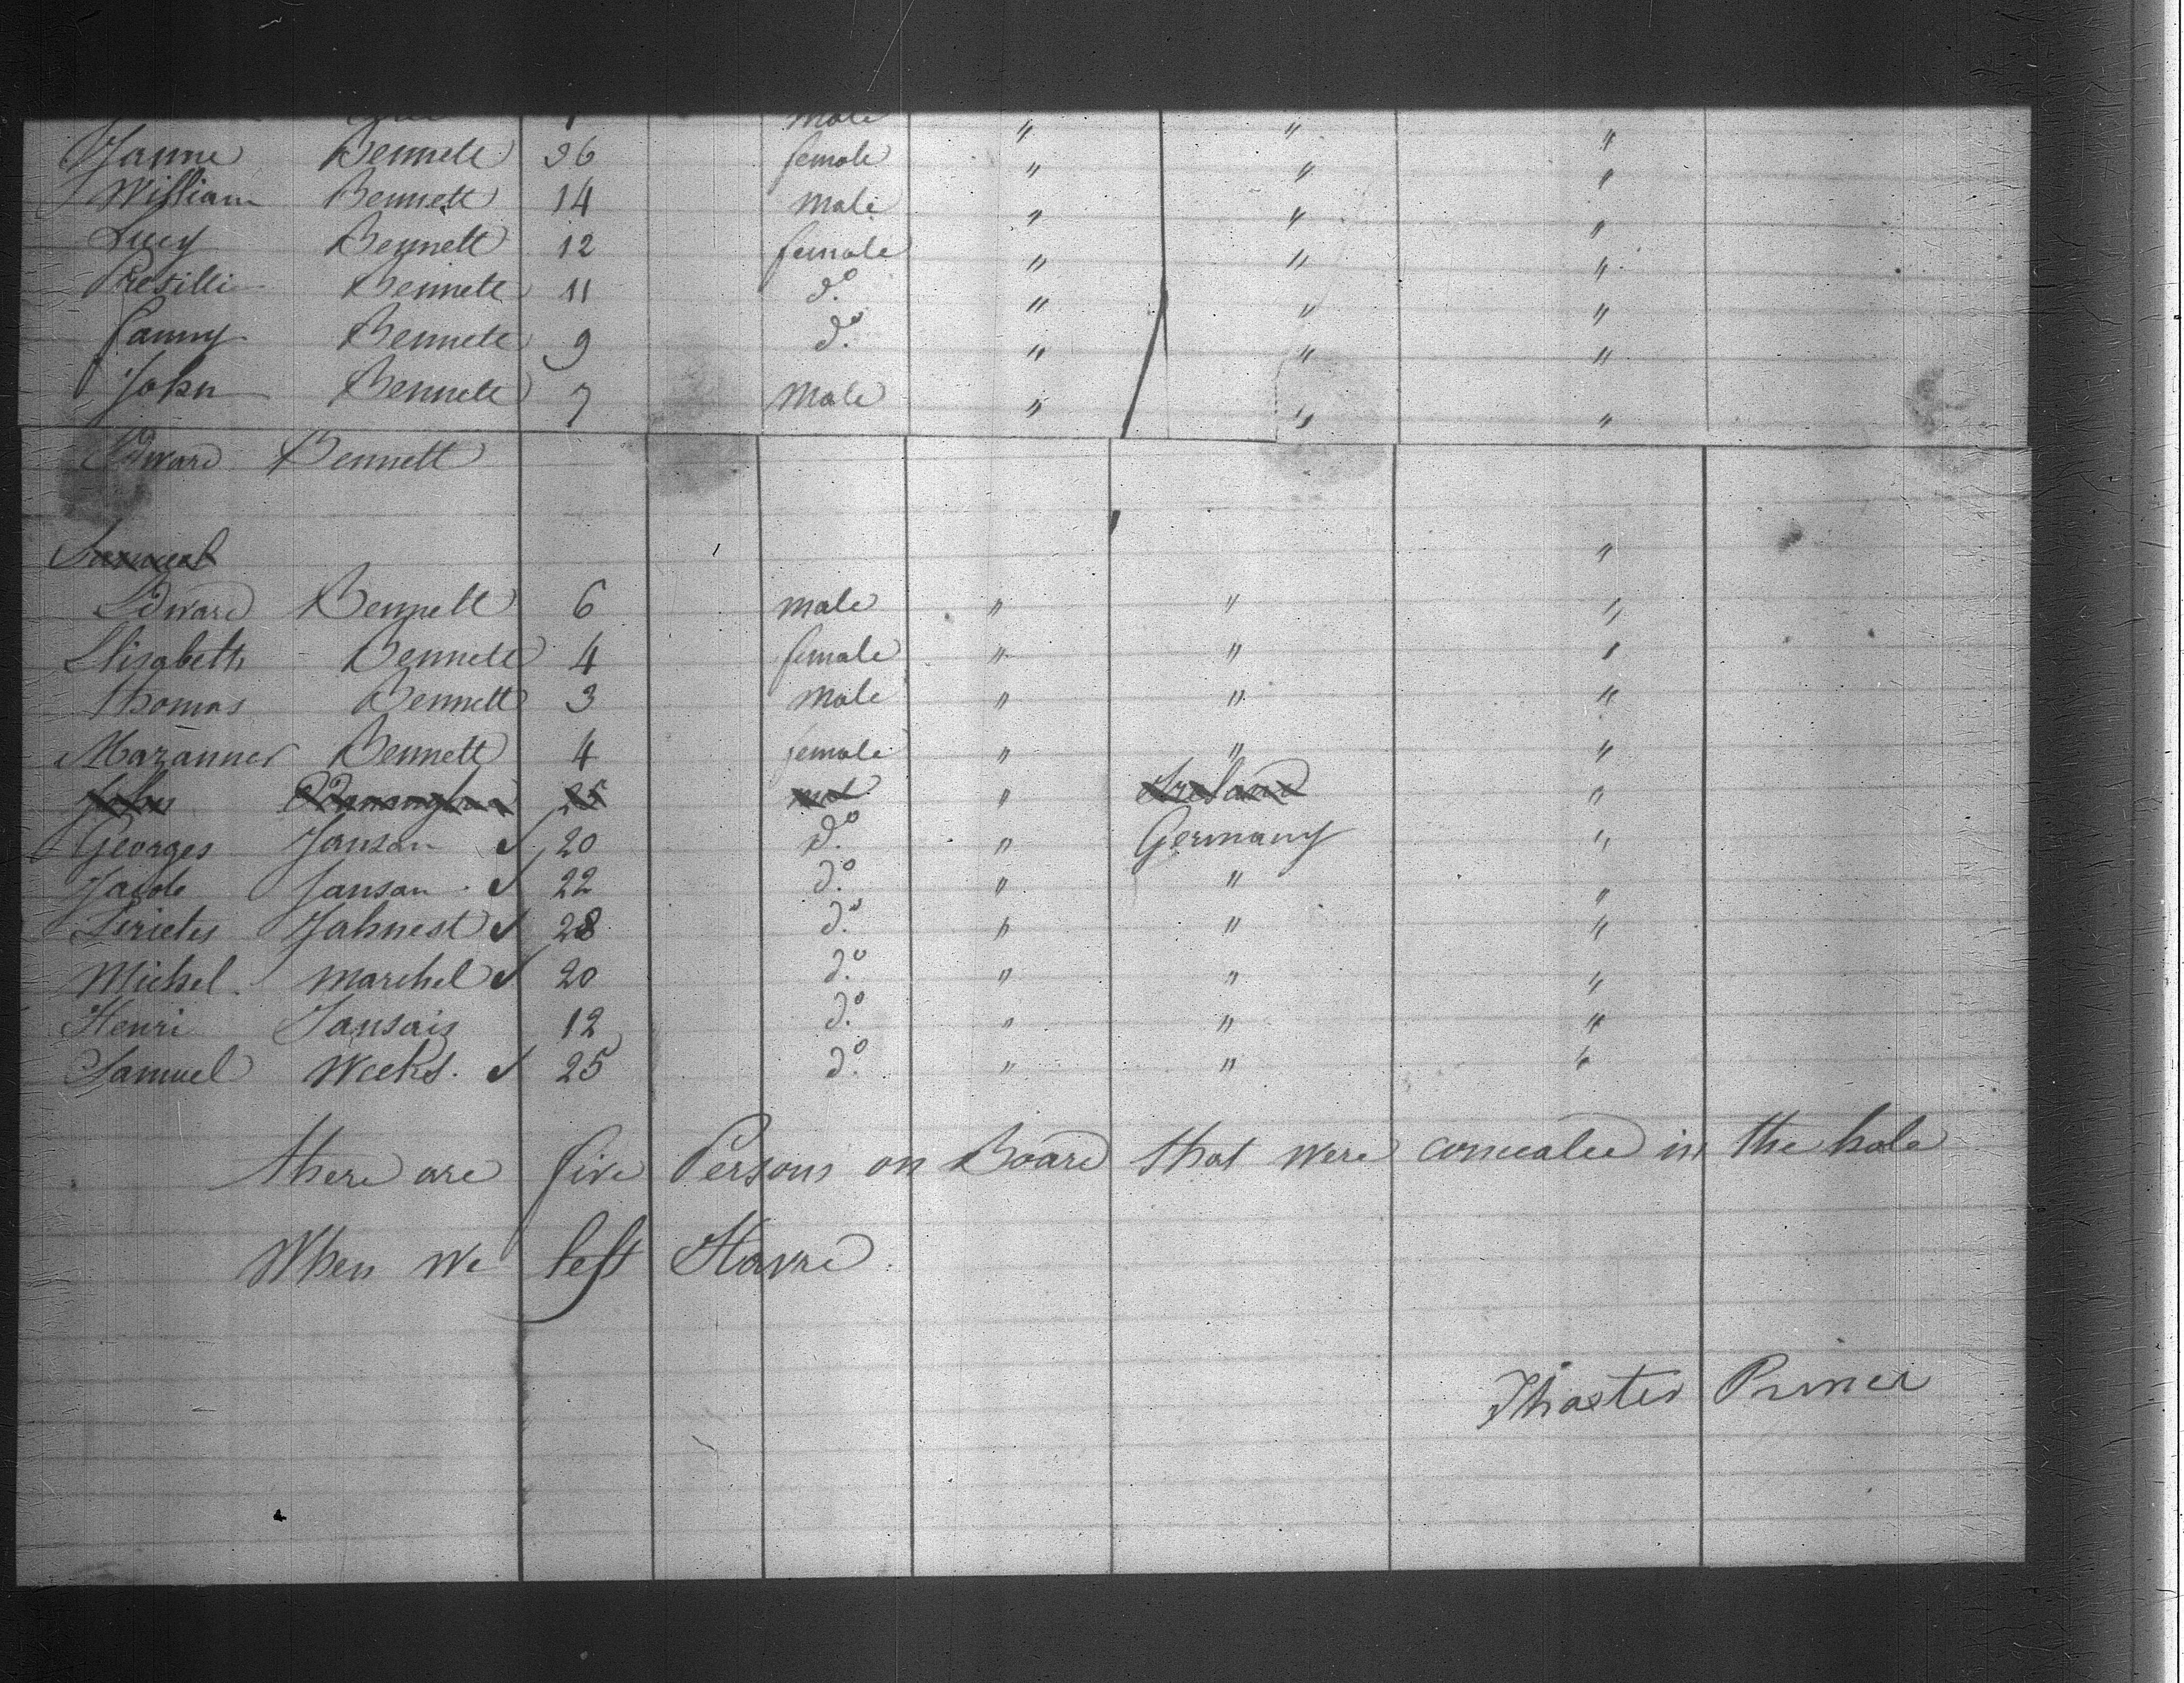 male " " "
Janne Bennett 36 female " " "
William Bennett 14 Male " " "
Lucy Bennett 12 female " " "
Presilli Bennett 11 do. " " "
Fanny Bennett 9 do. " " "
John Bennett 7 Male " " "
Edward Bennett
Samuel "
Edward Bennett 6 male " " "
Elisabeth Bennett 4 female " " "
Thomas Bennett 3 Male " " "
Maranner Bennett 4 female " " "
John 25 mal " Ireland "
Georges Jansan ✓ 20 do. " Germany "
Jacob Jansan ✓ 22 do. " " "
Jahnest ✓ 28 do. " " "
Michel Marchel ✓ 20 do. " " "
Henri Jansais 12 do. " " "
Samuel Weeks. ✓ 25 do. " " "
there are five Persons on Board that were concealed in the hole
When we left Havre